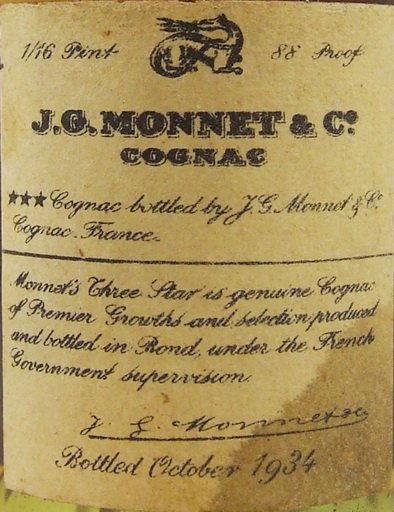 1/16 Pint 88 Proof
J.G. MONNET & Co
COGNAC
★★★ Cognac bottled by J.G. Monnet & Co
Cognac. France.
Monnet's Three Star is genuine Cognac
of Premier Growths and selection produced
and bottled in Bond, under the French
Government supervision.
J. G. Monnet & Co
Bottled October 1934